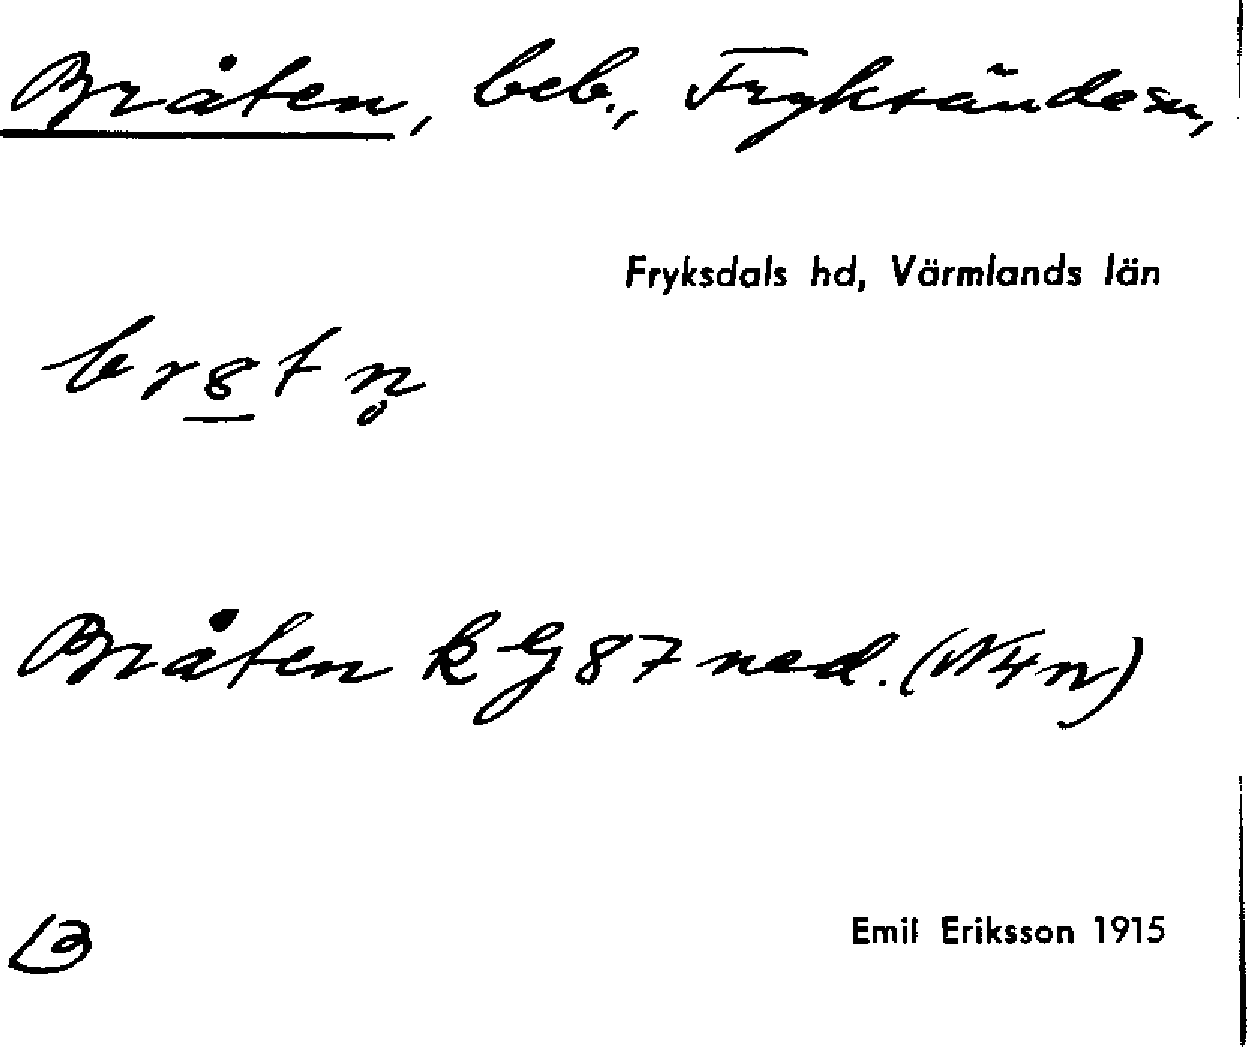 Bråten, beb., Fryksände sn,
Fryksdals hd, Värmlands län
br8tn̥
Bråten k G 87 ned. (N4n)
B
Emil Eriksson 1915